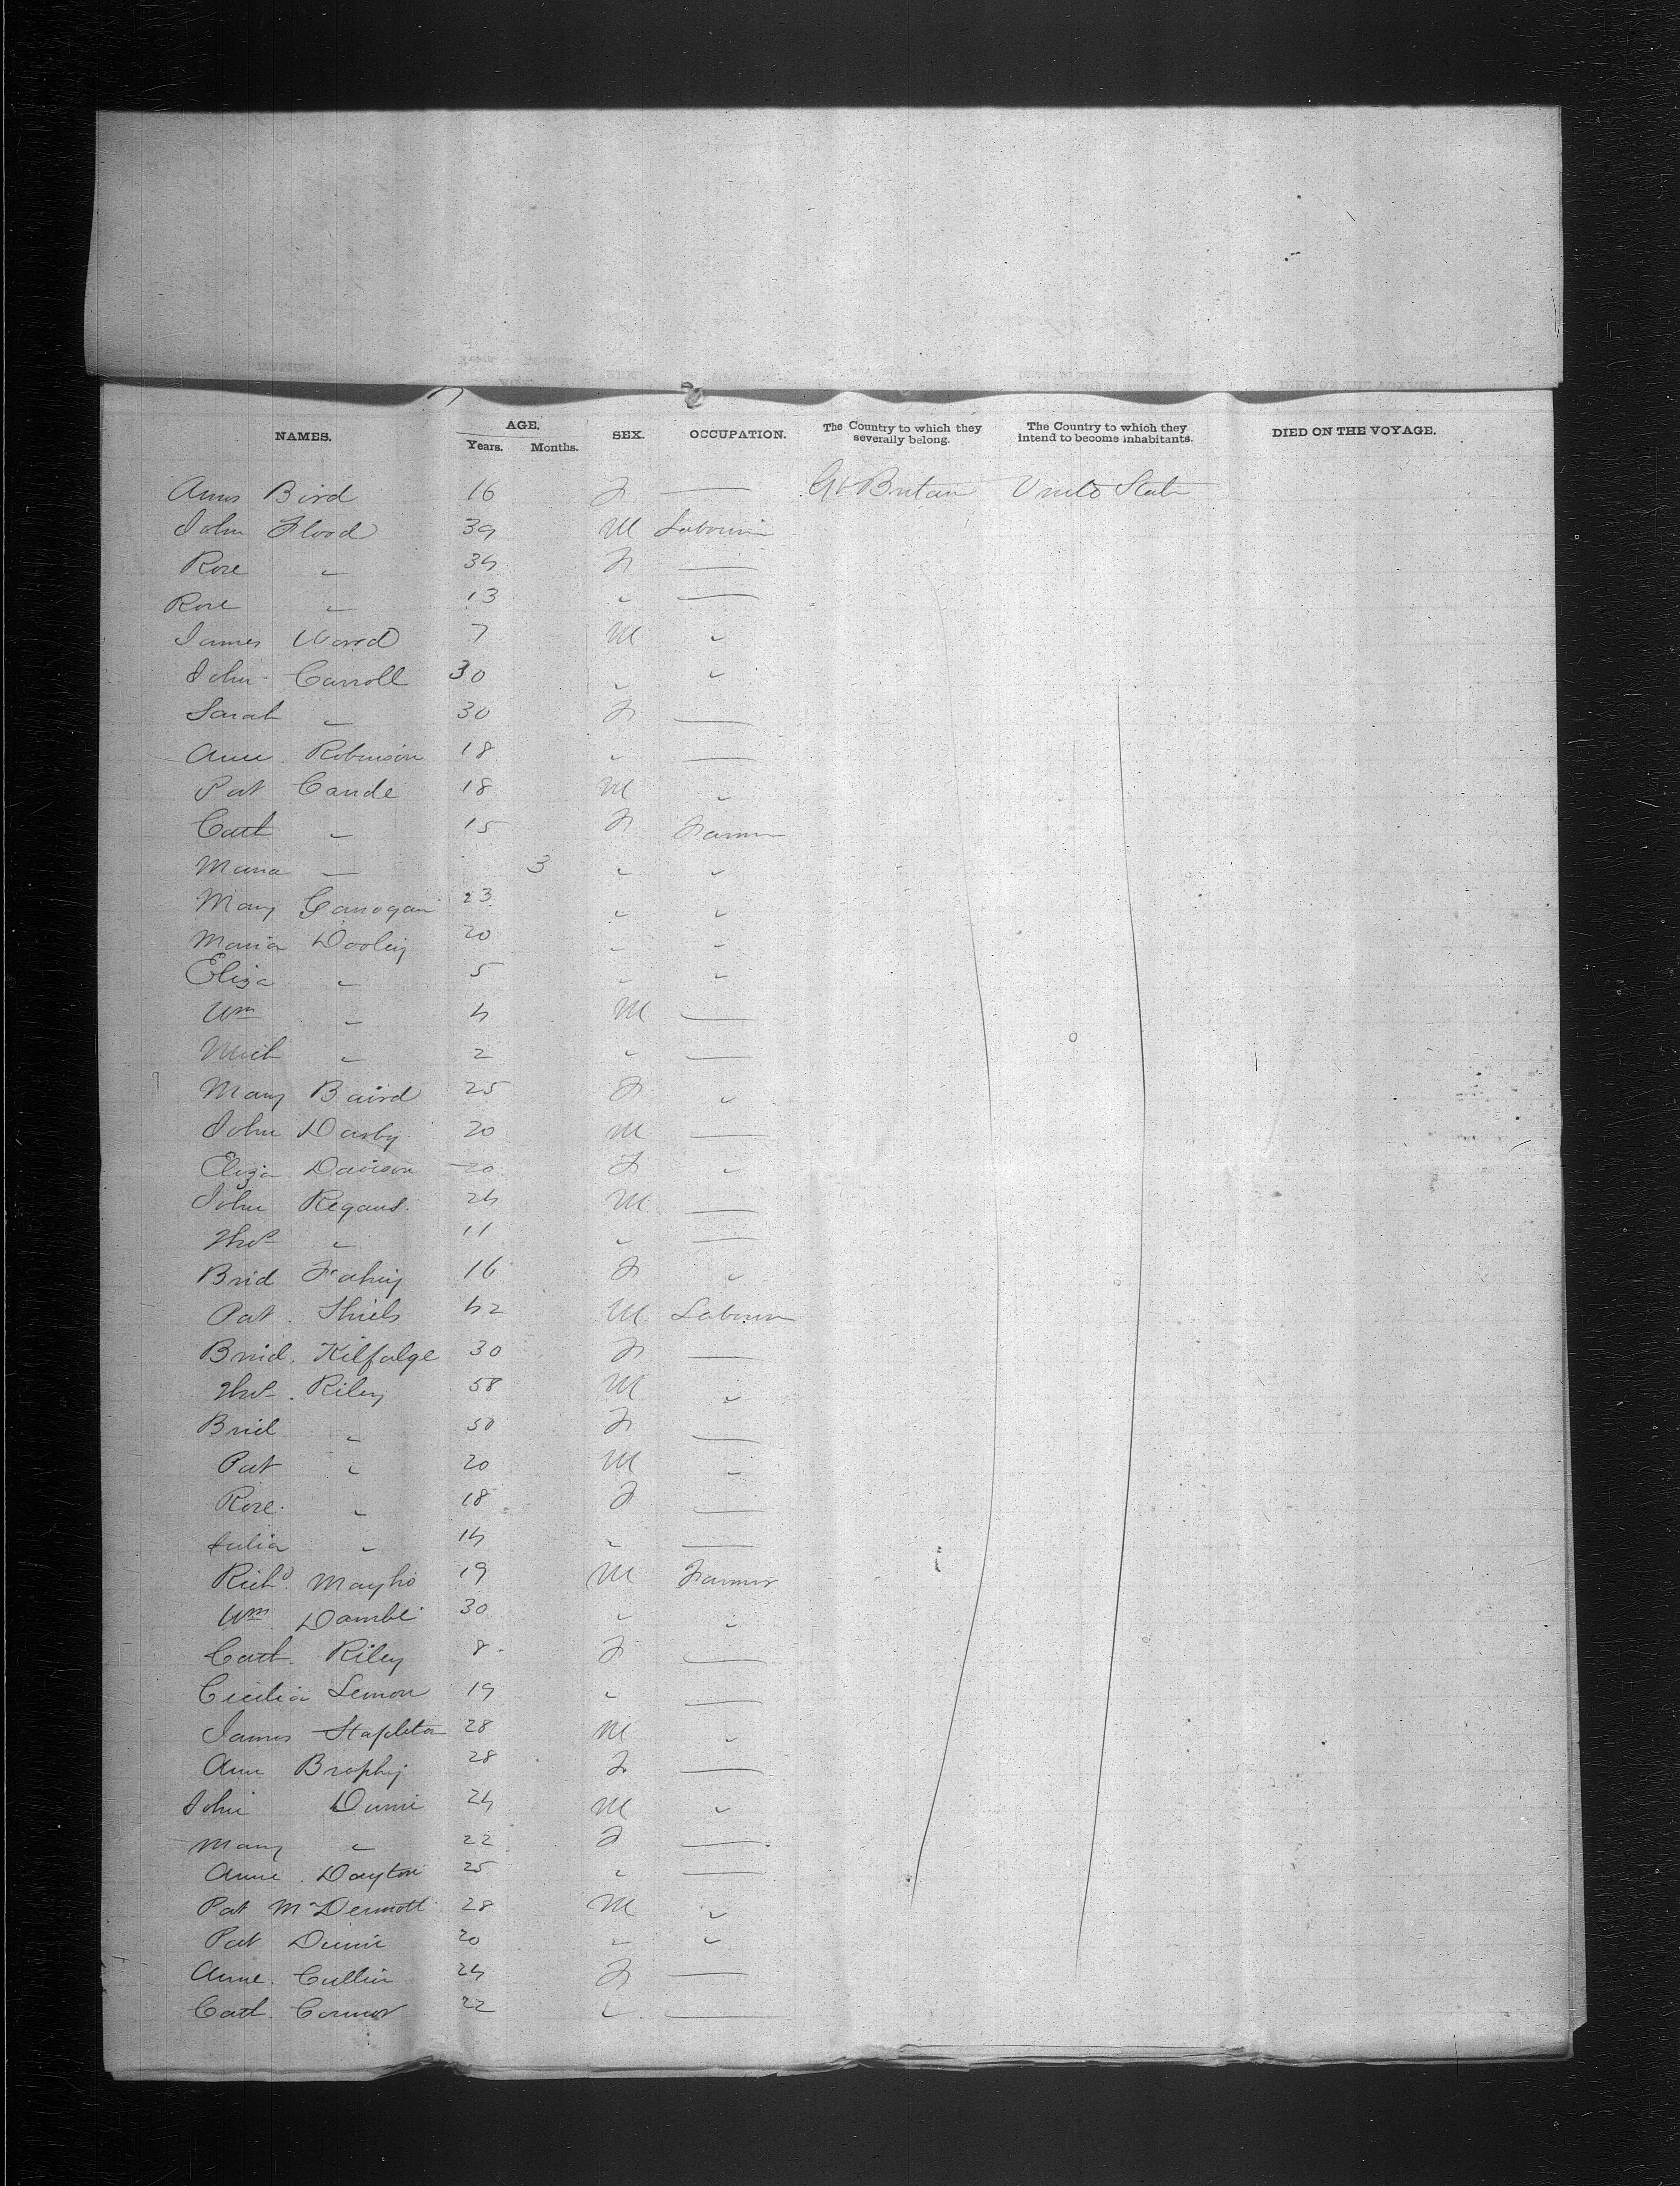 NAMES. AGE. Years. Months. SEX. OCCUPATION. The Country to which they severally belong. The Country to which they intend to become inhabitants. DIED ON THE VOYAGE.
Bird 16 F — Gt Britain United State
John Flood 39 M
Rose " 34 F —
Rose " 13 " —
James Ward 7 M "
John Carroll 30 " "
Sarah " 30 F —
Anne Robinson 18 " —
Pat 18 M "
Cath " 15 F
Maria — 3 " "
Mary 23 " "
Maria Dooley 20 " "
Eliza " 5 " "
Wm " 4 M —
Mich " 2 " —
Mary Baird 25 F "
John Darby 20 M —
Eliza Davison 20 F "
John Regans. 24 M —
Thos " 11 " —
Brid Fahey 16 F "
Pat Shiels 42 M
Brid. 30 F —
Thos. Riley 58 M "
Brid " 50 F —
Pat " 20 M "
Rose " 18 F —
Julia " 14 " —
Richd. Mayho 19 M Farmer
Wm 30 " "
Cath. Riley 8 F —
Cecilia Lemon 19 " —
James Stapleton 28 M "
Ann Brophy 28 F —
John Dunne 24 M "
Mary " 22 F —
Anne Dayton 25 " —
Pat McDermott 28 M "
Pat Dunne 20 " "
Anne. Cullin 24 F —
Cath. Connor 22 " —